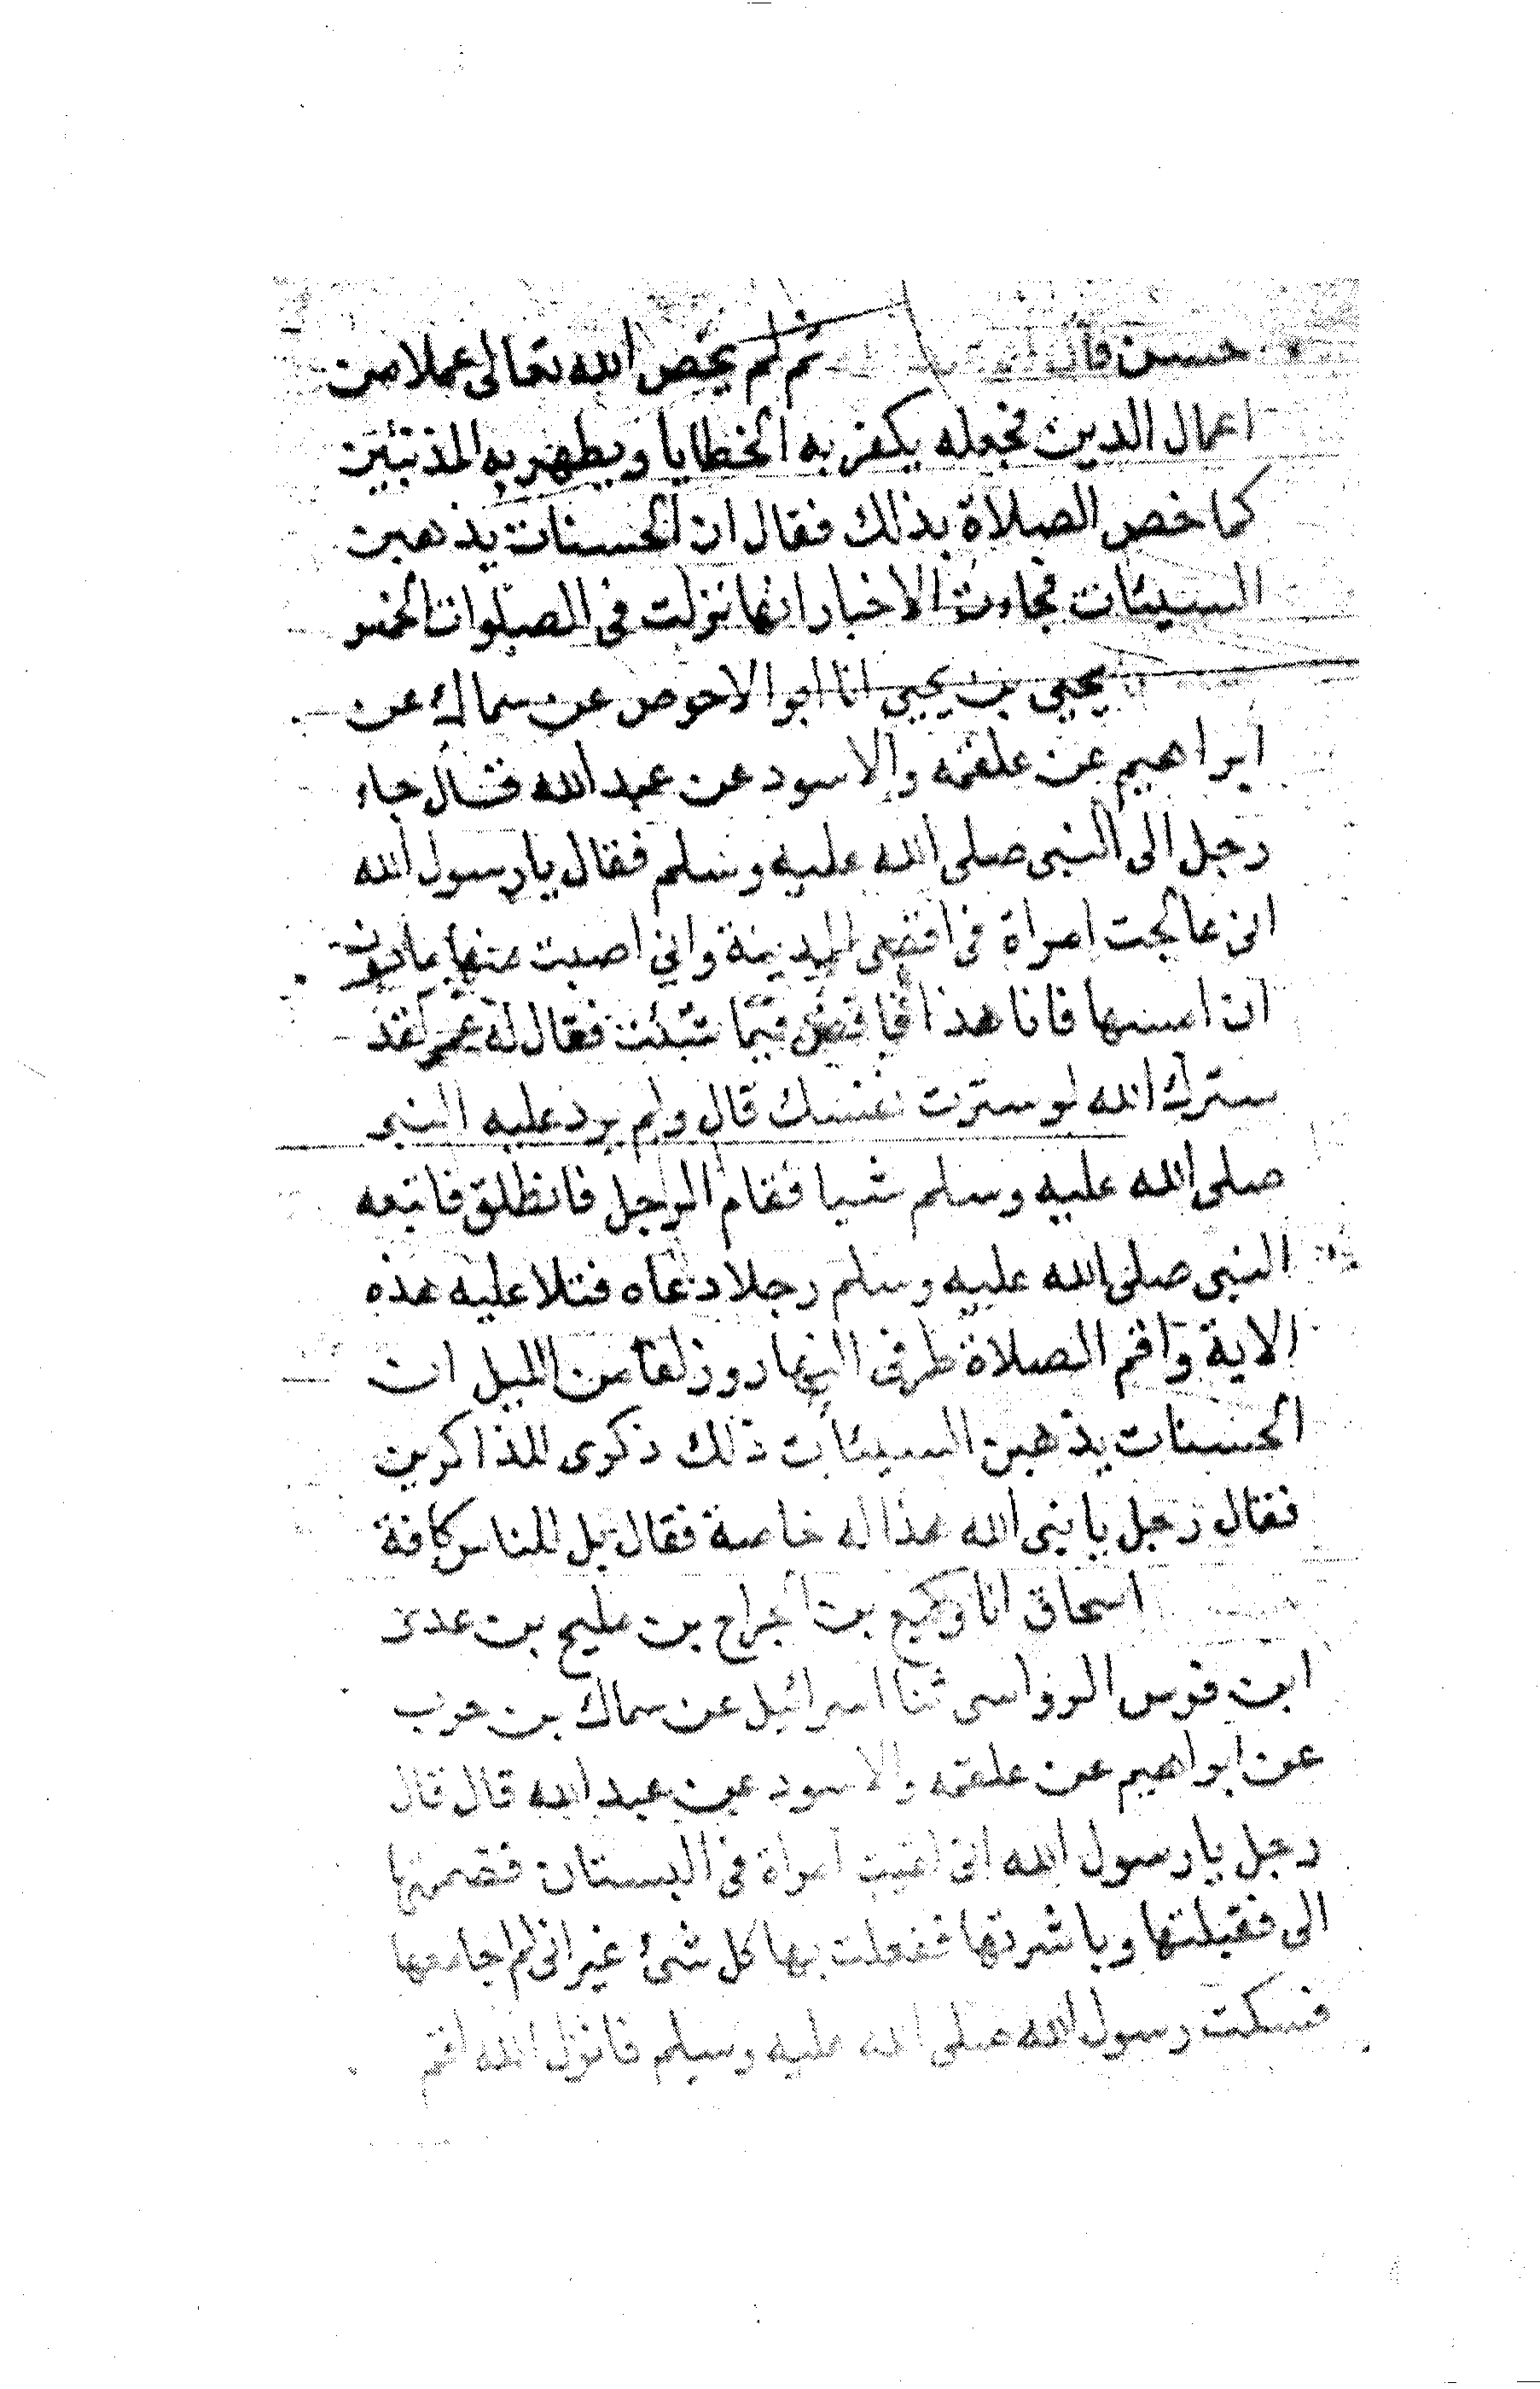 حسن قال ثم لم يخص الله تعالى عملا من
اعمال الدين فجعله يكفر به الخطايا ويطهر به المذنبين
كما خص الصلاة بذلك فقال ان الحسنات يذهبن
السيئات فجاءت الاخبار انها نزلت فى الصلوات الخمس
يحيى بن يحيى انا ابو الاحوص عن سماك عن
ابراهيم عن علقمه والاسود عن عبد الله قال جاء
رجل الى النبى صلى الله عليه وسلم فقال يا رسول الله
انى عالجت امراة فى اقصى المدينة واني اصبت منها ما دون
ان امسها فانا هذا فاقض فيما شئت فقال له عمر لقد
سترك الله لو سترت نفسك قال ولم يرد عليه النبى
صلى الله عليه وسلم شيا فقام الرجل فانطلق فاتبعه
النبى صلى الله عليه وسلم رجلا دعاه فتلا عليه هذه
الاية واقم الصلاة طرفى النهار وزلفا من الليل ان
الحسنات يذهبن السيئات ذلك ذكرى للذاكرين
فقال رجل يا نبى الله هذا له خاصة فقال بل للناس كافة
اسحاق انا وكيع بن الجراح بن مليح بن عدى
ابن فرس الرواسى ثنا اسرائيل عن سماك بن حرب
عن ابراهيم عن علقمه والاسود عن عبد الله قال قال
رجل يا رسول الله انى لقيت امراة فى البستان فضممتها
الى فقبلتها وباشرتها ففعلت بها كل شئ غير انى لم اجامعها
فسكت رسول الله صلى الله عليه وسلم فانزل الله اقم